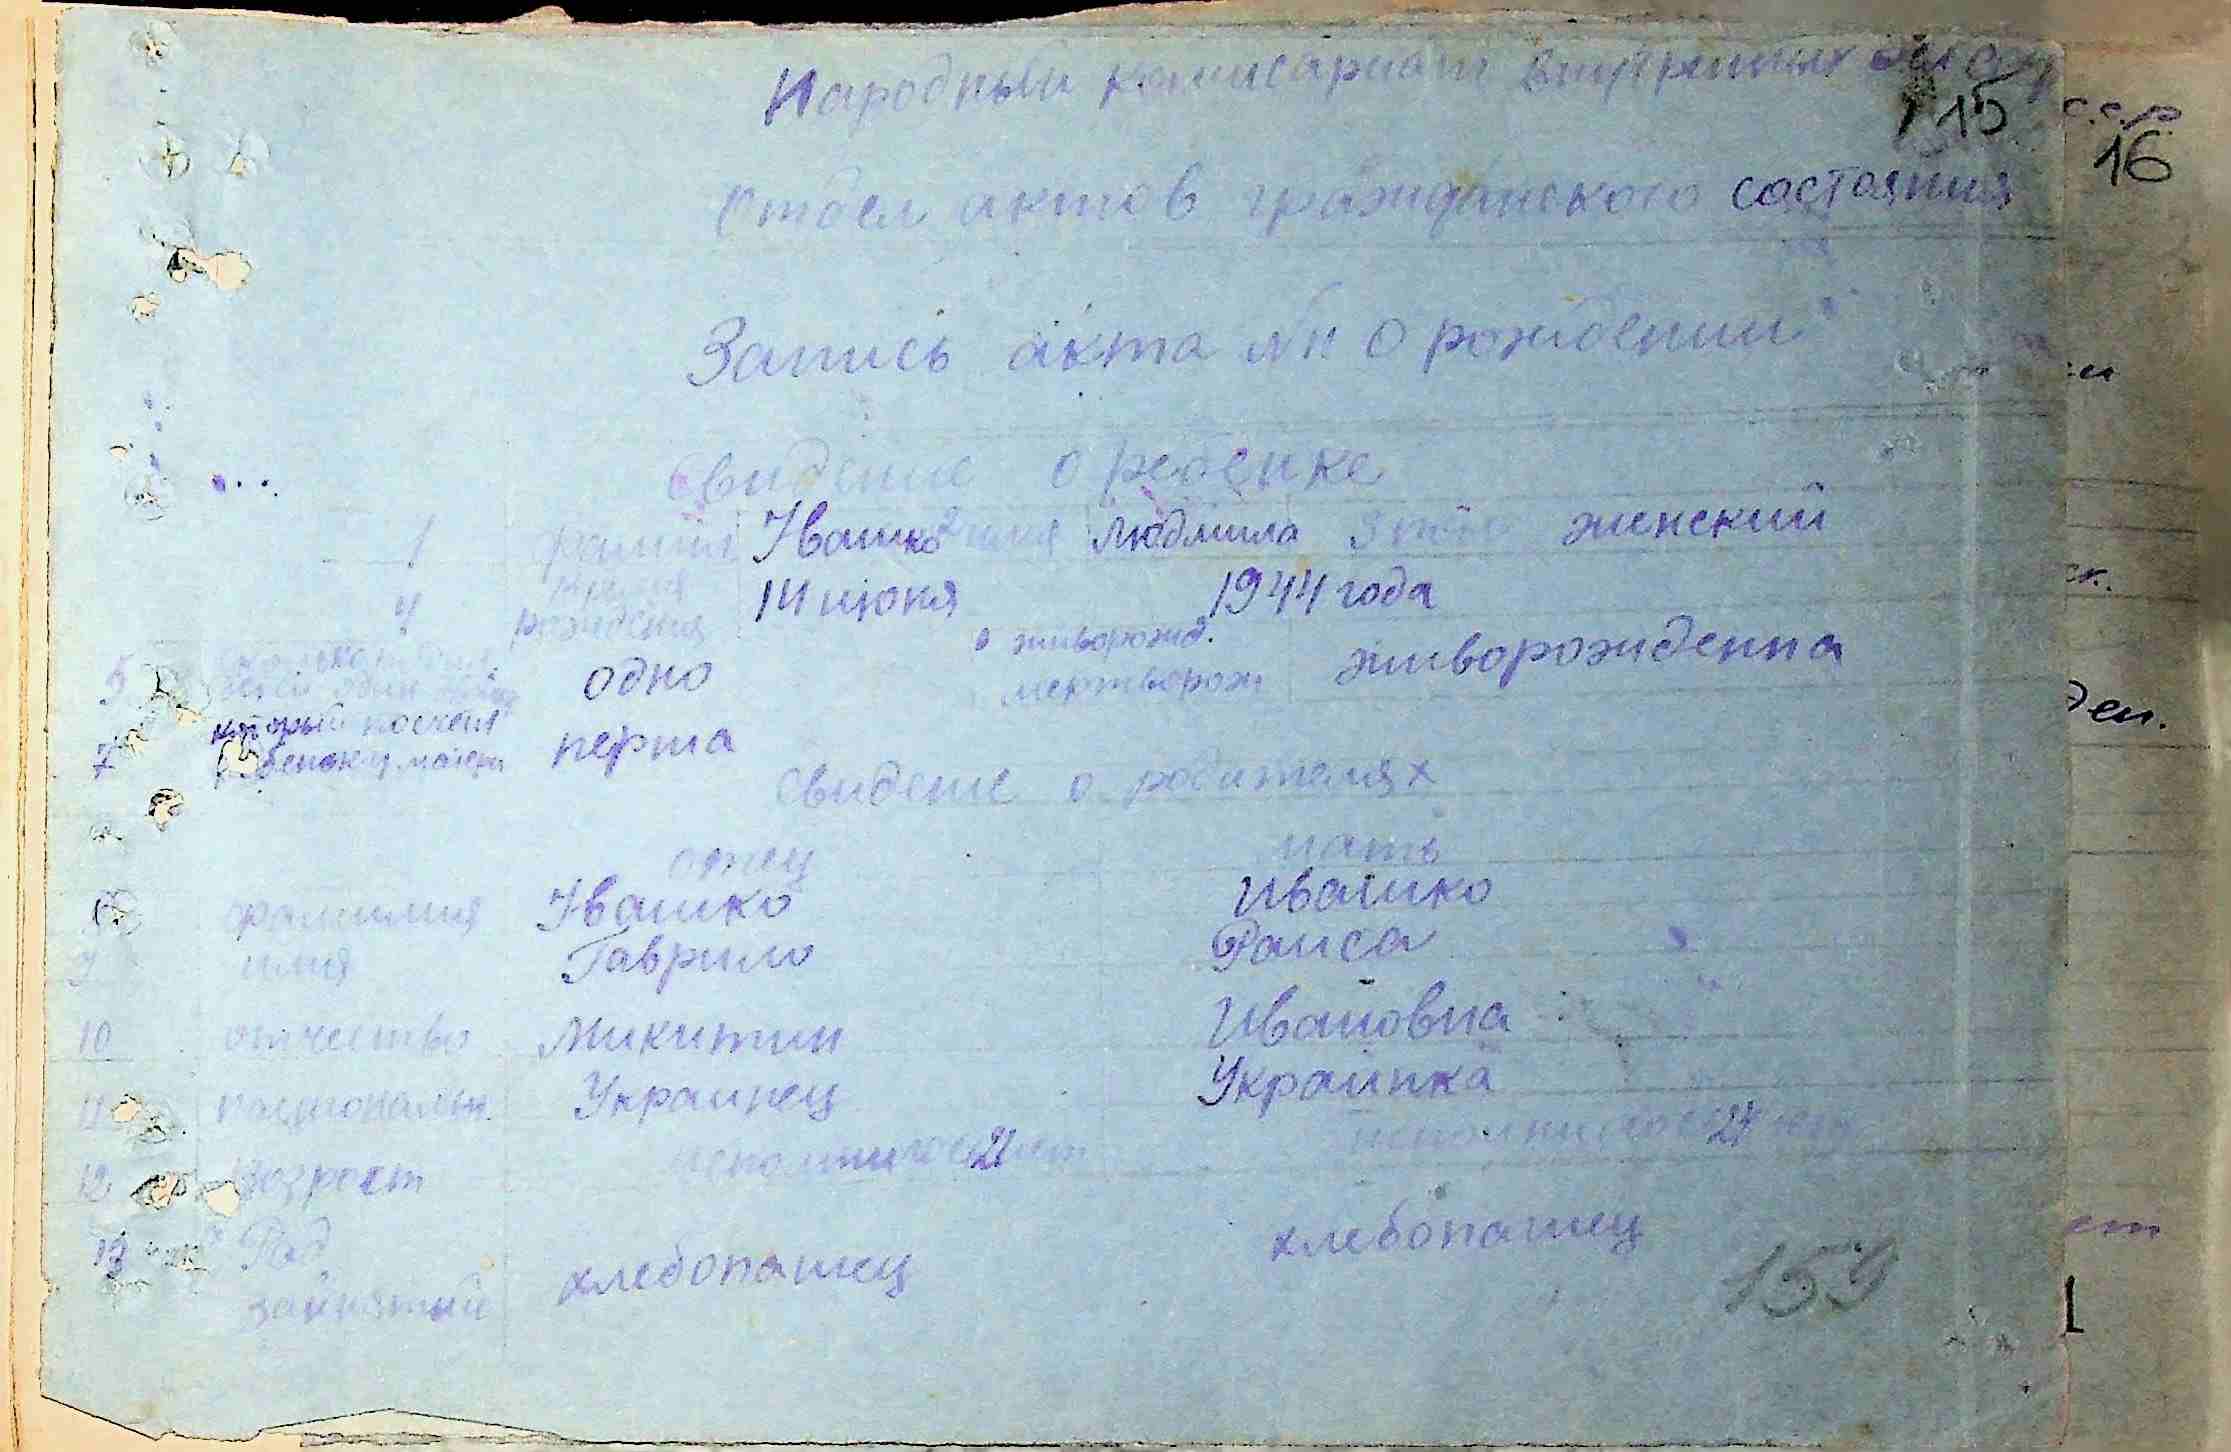 Народный комисариат внутренних дел
115
с.с.р.
16
отдел актов гражданского состояния
Запись акта № 11 о рождении
Свидение о ребенке
1 фамил Ивашко 2 имя Людмила 3 пол женский
4 время рождения 14 июня 1944 года
5 одно 6 живорожд. мертворож живорожденна
7 который по счету ребенок у матери перша
свидение о родителях
отец мать
8 фамилия Ивашко Ивашко
9 имя Гаврило Раиса
10 отчество Микитич Ивановна
11 националт. Украинец Украинка
12 Возраст исполнилось 21 лет исполнилос 21 лет
13 Род занятий хлебопашец хлебопашец
159